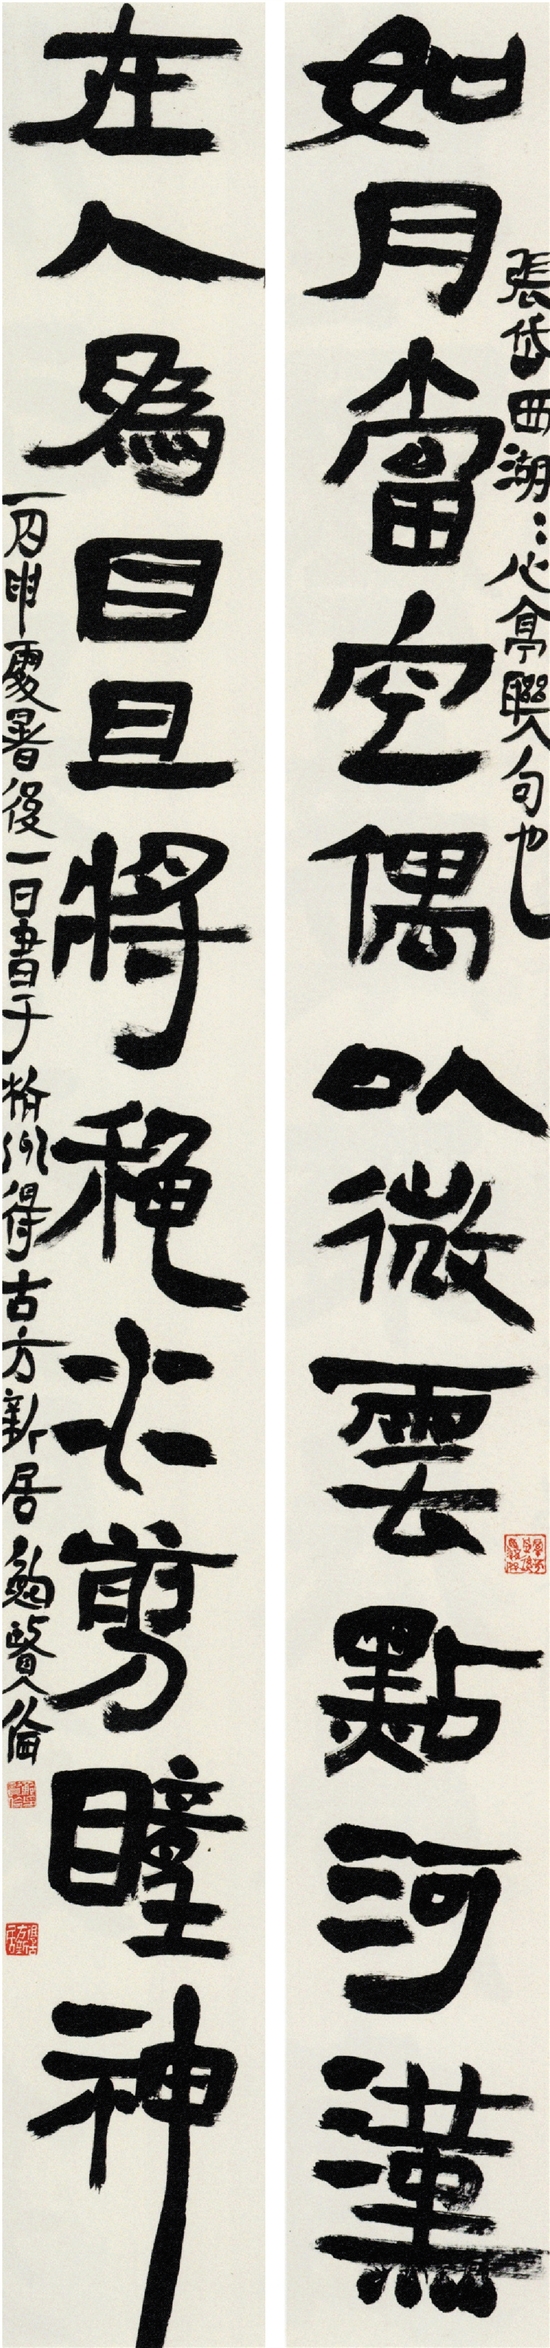 張岱西湖〻心亭聯句也
如月當空偶以微雲點河漢
在人為目且將秋水剪瞳神
丙申處暑後一日書于得古方新居鮑賢倫